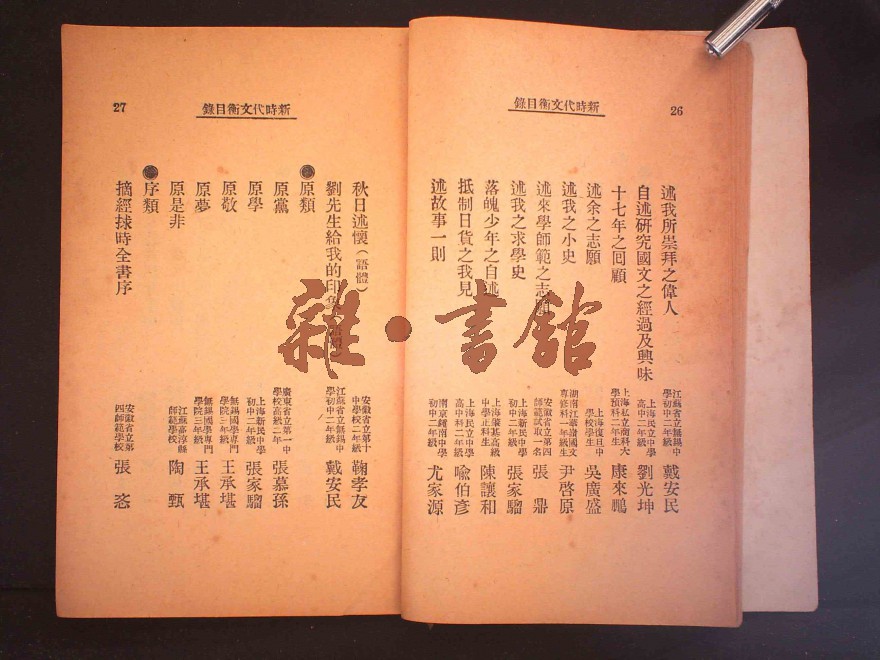 新時代文衡目錄
26
述我所崇拜之偉人 江蘇省立無錫中學初中二年級 戴安民
自述研究國文之經過及興味 上海民立中學高中二年級 劉光坤
十七年之回顧 上海私立商科大學預科二年生 康來鵬
述余之志願 上海復旦中學校學生 吳廣盛
述我之小史 湖南江華嶺國文專修科一年級生 尹啓原
述來學師範之志 安徽省立第四師範試取一名 張鼎
述我之求學史 上海新民中學初中二年級 張家騮
落魄少年之自述 上海肇基高級中學正科生 陳讓和
抵制日貨之我見 上海民立中學高中科二年級 喩伯彥
述故事一則 南京鍾南中學初中二年級 尤家源
新時代文衡目錄
27
秋日述懷（語體） 安徽省立第十中學校二年級 鞠孝友
劉先生給我的印象 江蘇省立無錫中學初中二年級 戴安民
原類
原黨 廣東省立第一中學校高級二年 張慕孫
原學 上海新民中學初中二年級 張家騮
原敬 無錫國學專門學院三年級 王承堪
原夢 無錫國學專門學院三年級 王承堪
原是非 江蘇高淳縣師範 陶甄
序類
摘經捄時全書序 安徽省立第四師範學校 張恣
雜·書館